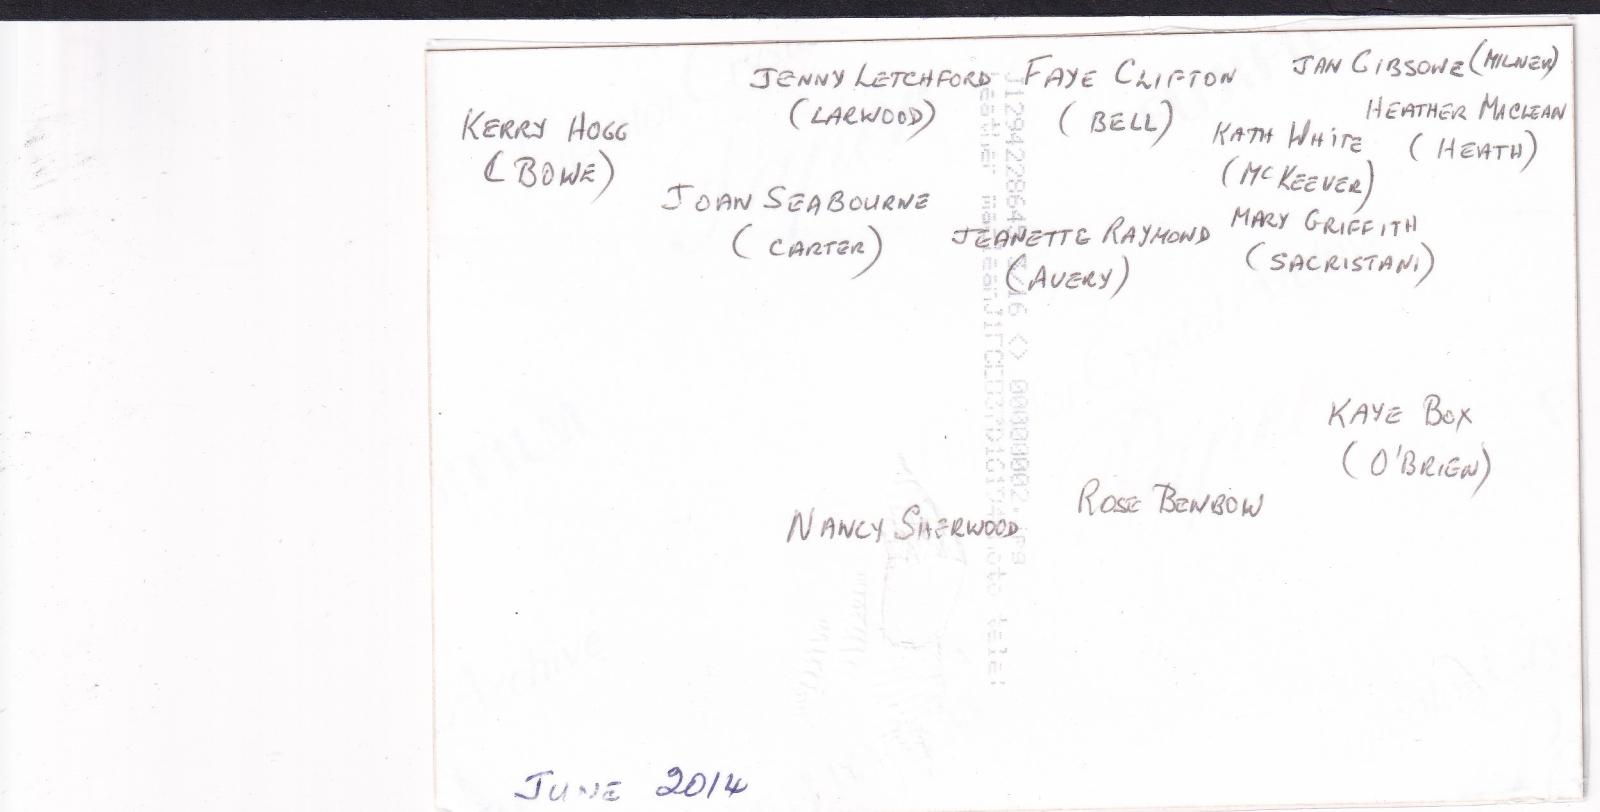 JENNY LETCHFORD
(LARWOOD)
FAYE CLIFTON
(BELL)
JAN GIBSONE (MILNER)
HEATHER MACLEAN
(HEATH)
KERRY HOGG
(BOWE)
KATH WHITE
(McKEEVER)
JOAN SEABOURNE
(CARTER)
JEANETTE RAYMOND
(AVERY)
MARY GRIFFITH
(SACRISTANI)
KAYE BOX
(O'BRIEN)
NANCY SHERWOOD
ROSE BENBOW
JUNE 2014
Archive